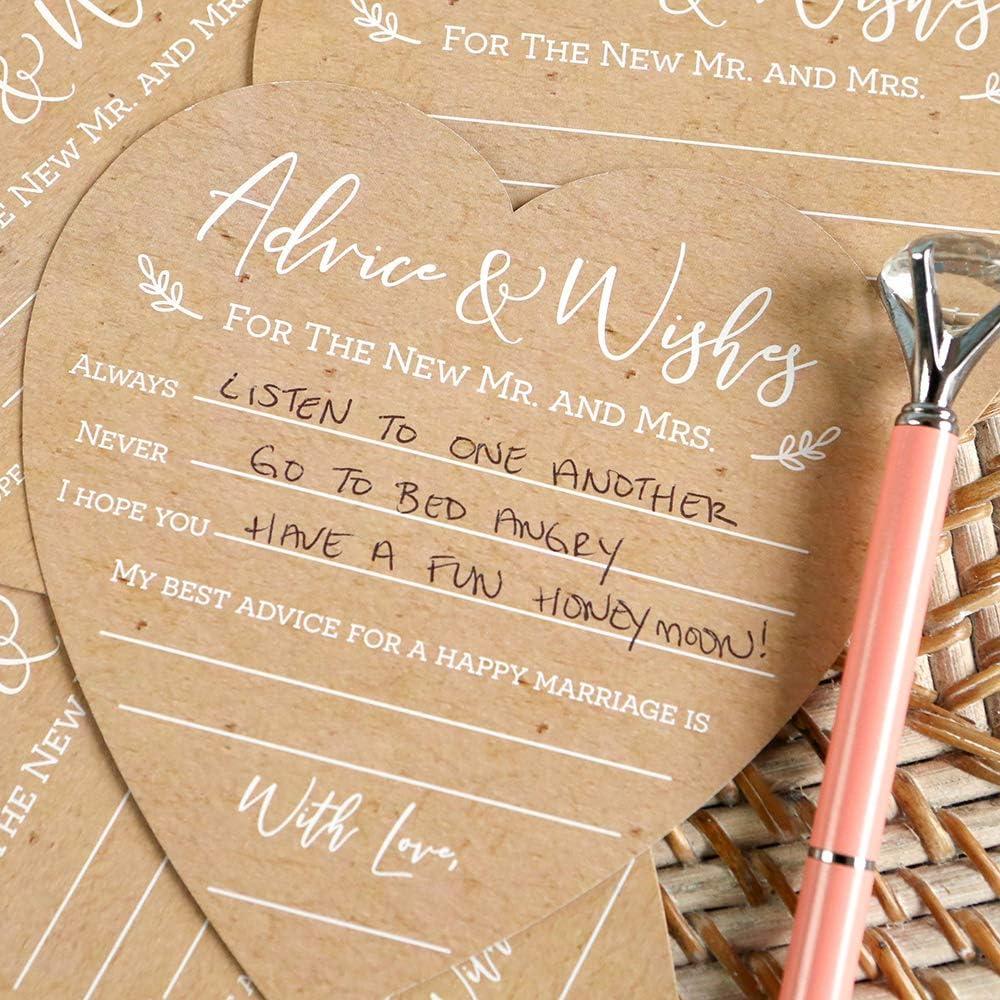 & W
New Mr. and Mrs.
& Wishes
For The New Mr. and Mrs.
Advice & Wishes
For The New Mr. and Mrs.
Always LISTEN TO ONE ANOTHER
Never GO TO BED ANGRY
I hope you HAVE A FUN HONEYMOON!
My best advice for a happy marriage is
With Love,
&
The New
With